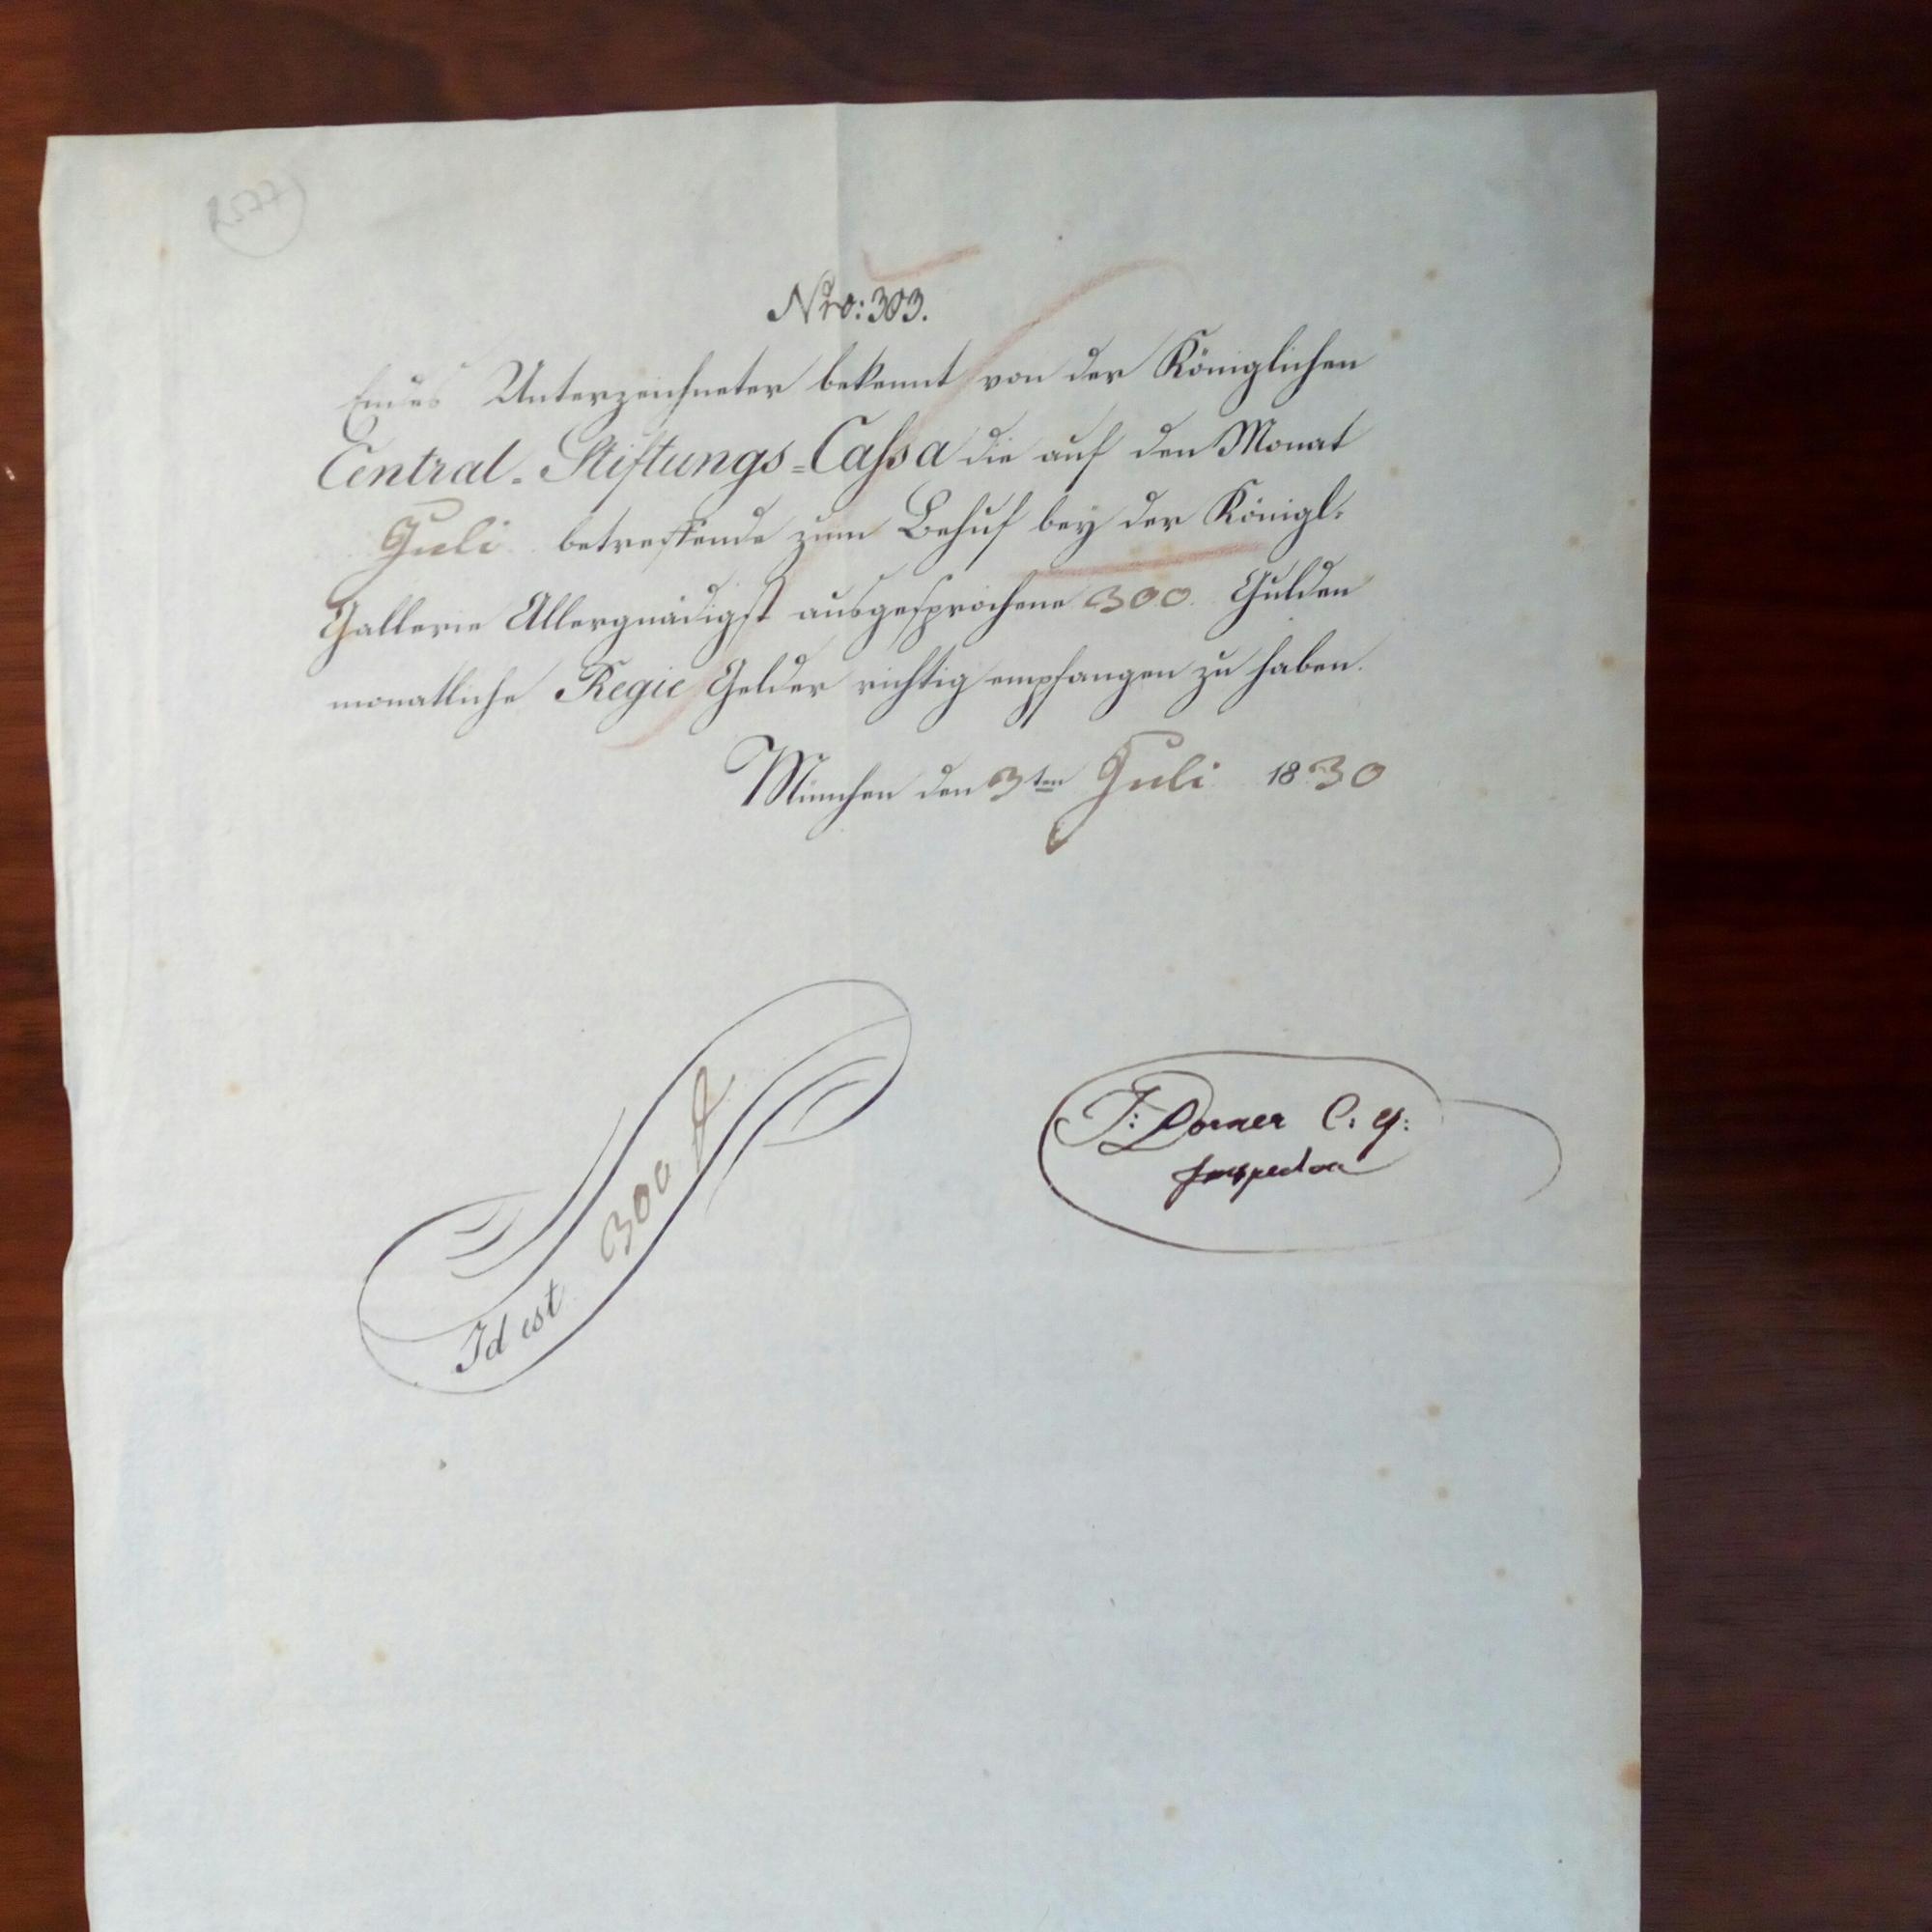 Nro: 303.
Endes Unterzeichneter bekennt von der Königlichen
Central-Stiftungs-Cassa die auf den Monat
Juli betreffende zum Behuf bey der Königl:
Gallerie Allergnädigst ausgesprochene 300. Gulden
monatliche Regie Gelder richtig empfangen zu haben.
München den 3ten Juli 1830
Id est 300 fl
J: Dorner C: G:
Inspector